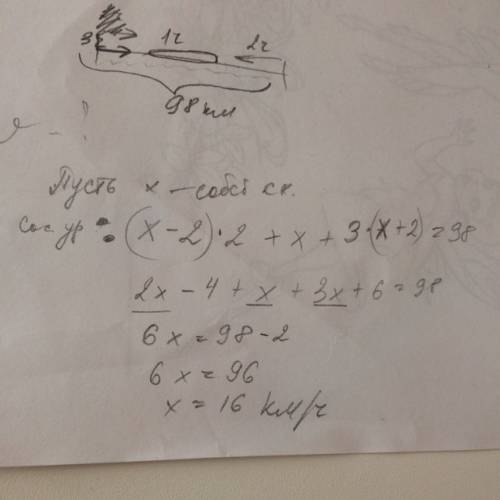 3ч 1ч 2ч
98 км
Пусть x – собст ск.
Сос. ур: (x-2)·2 + x + 3·(x+2)=98
2x - 4 + x + 3x + 6 = 98
6x = 98-2
6x = 96
x = 16 км/ч